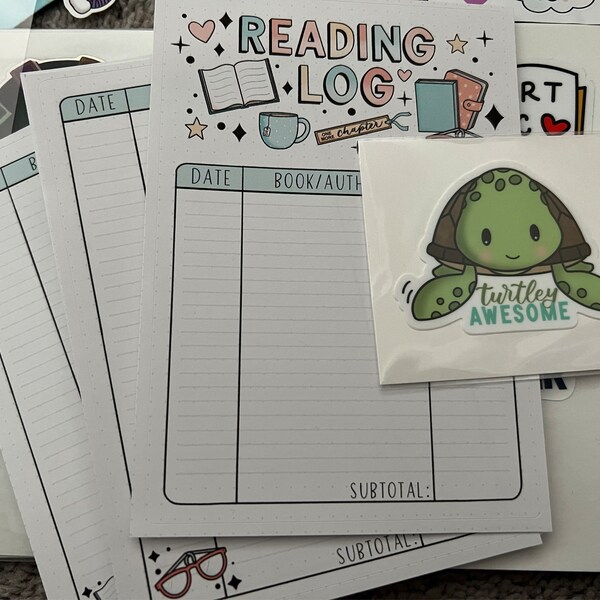 READING
LOG
ONE MORE chapter
DATE
BOOK/AUTH
SUBTOTAL:
DATE
SUBTOTAL:
turtley
AWESOME